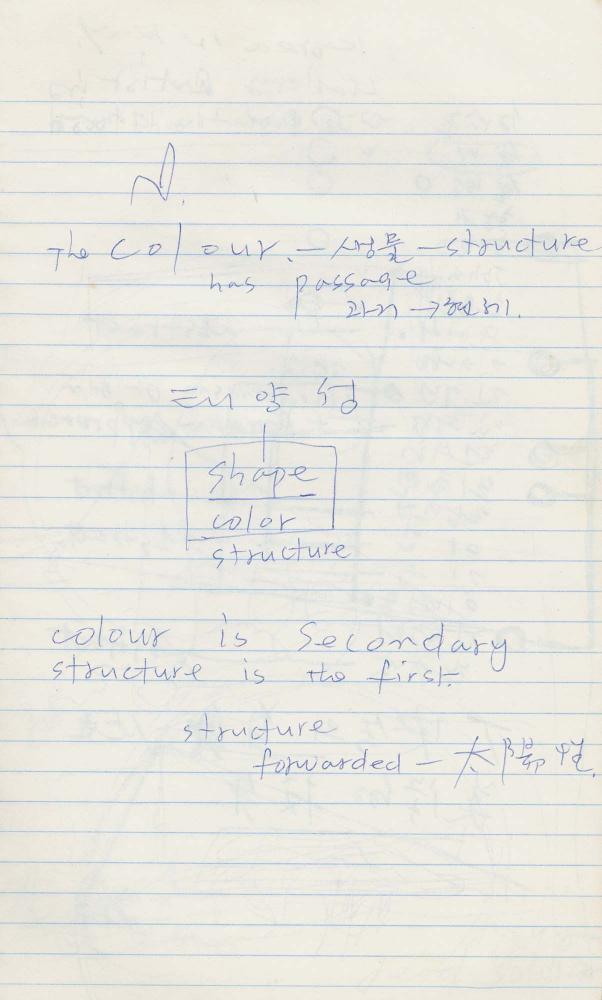 The colour. – 생물 – structure
has passage
과거 → 현재.
태양성
shape
color
structure
colour is Secondary
structure is the first.
structure
forwarded – 太陽性.